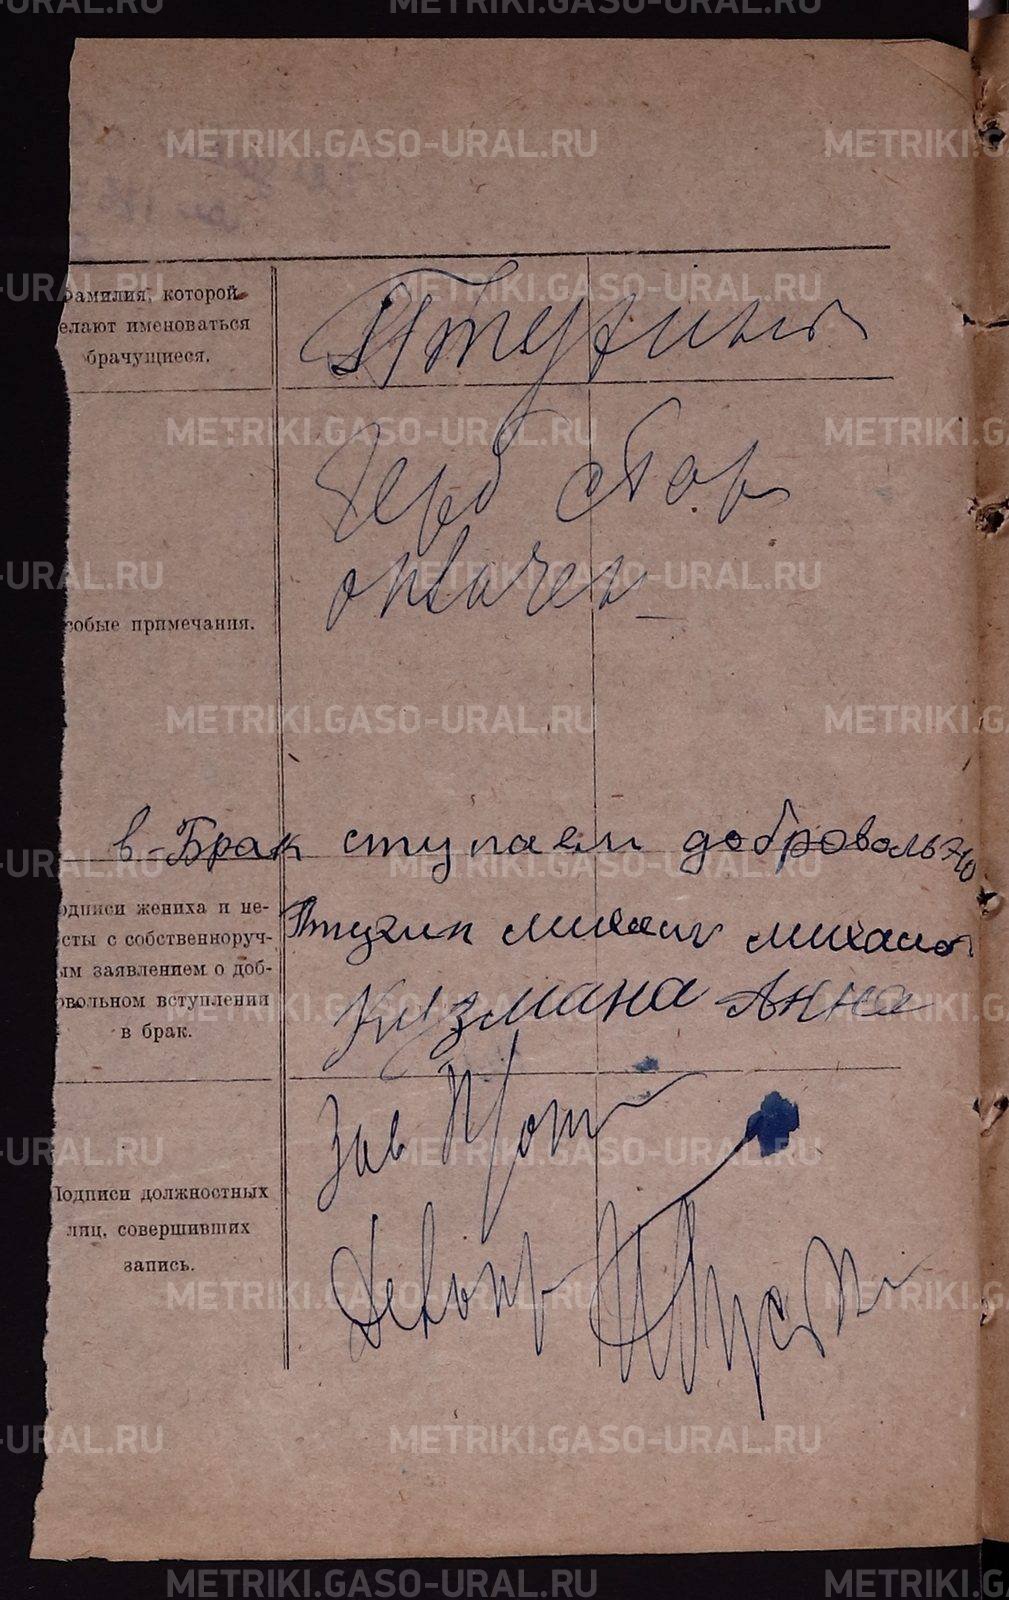 METRIKI.GASO-URAL.RU
амилия, которой
елают именоваться
брачущиеся.
Птухины
Герб стор
оплачен
собые примечания.
в-Брак ступаем добровольно
одписи жениха и не-
сты с собственноруч-
ым заявлением о доб-
овольном вступлении
в брак.
Птухин михаил михаил
Кузмина Анна
Подписи должностных
лиц, совершивших
запись.
Зав
Делопр